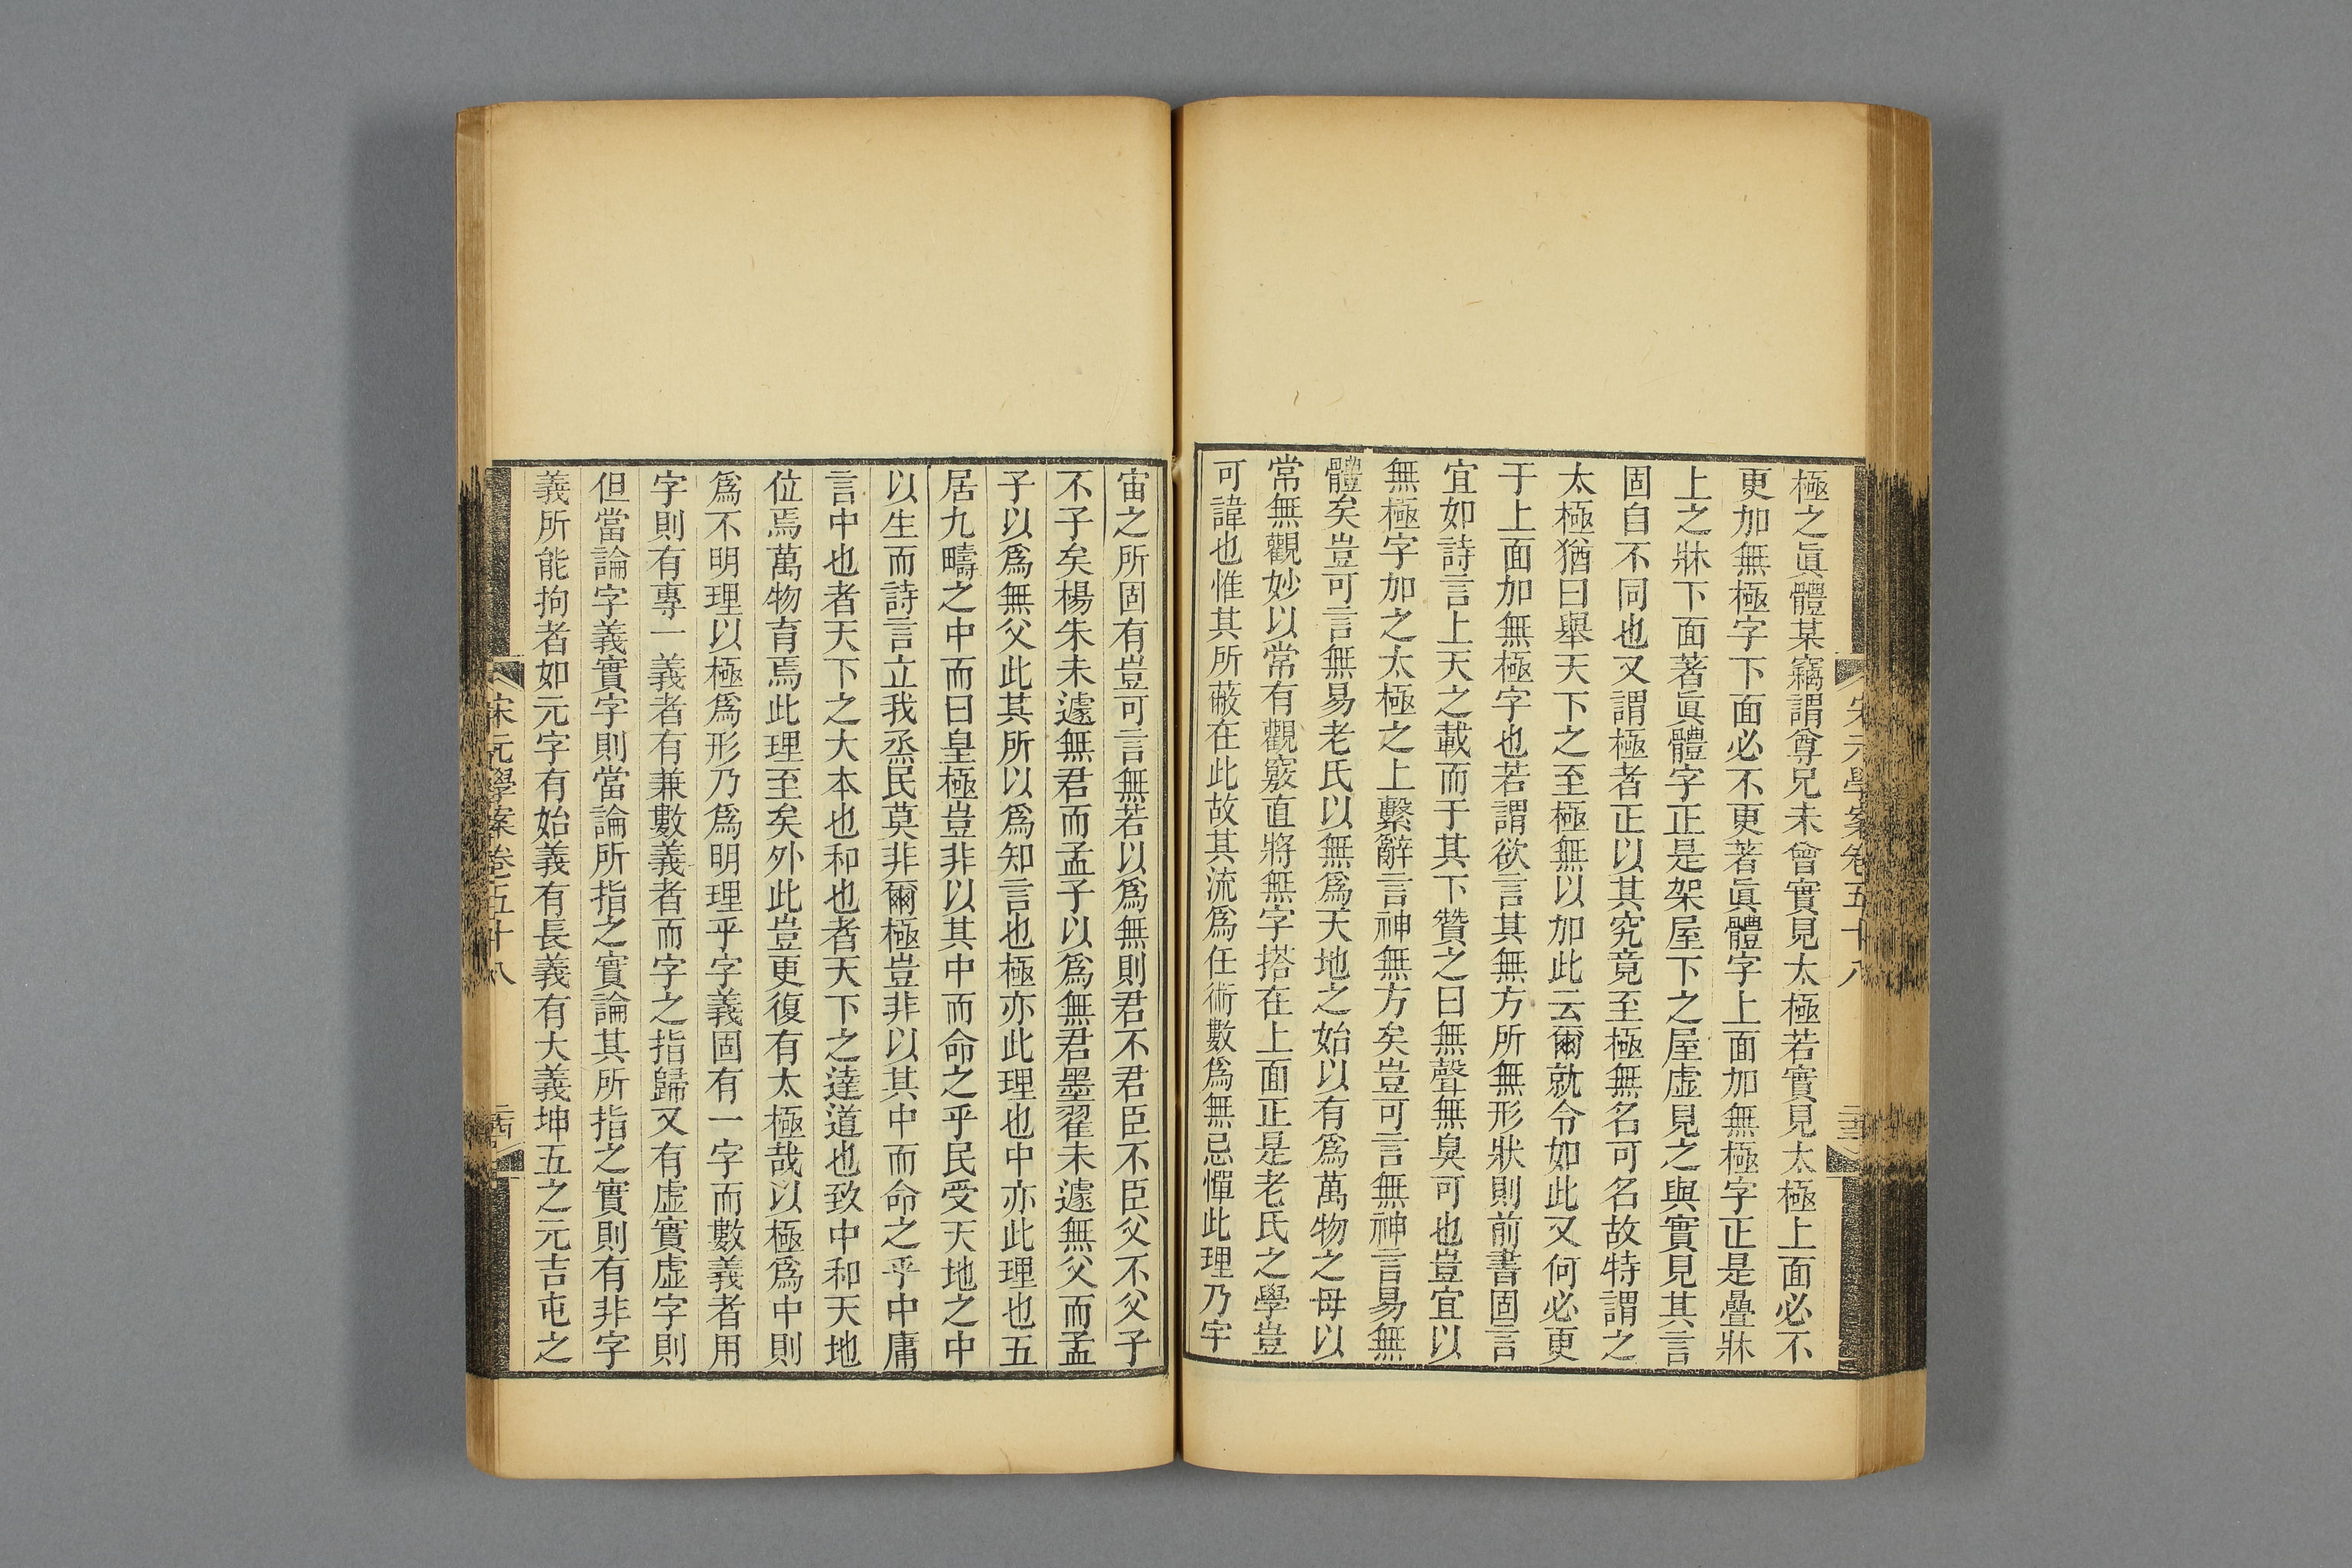 極之眞體某竊謂尊兄未曾實見太極若實見太極上面必不
更加無極字下面必不更著眞體字上面加無極字正是疊牀
上之牀下面著眞體字正是架屋下之屋虛見之與實見其言
固自不同也又謂極者正以其究竟至極無名可名故特謂之
太極猶曰舉天下之至極無以加此云爾就令如此又何必更
于上面加無極字也若謂欲言其無方所無形狀則前書固言
宜如詩言上天之載而于其下贊之曰無聲無臭可也豈宜以
無極字加之太極之上繫辭言神無方矣豈可言無神言易無
體矣豈可言無易老氏以無爲天地之始以有爲萬物之母以
常無觀妙以常有觀竅直將無字搭在上面正是老氏之學豈
可諱也惟其所蔽在此故其流爲任術數爲無忌憚此理乃宇
宋元學案卷五十八
宙之所固有豈可言無若以爲無則君不君臣不臣父不父子
不子矣楊朱未遽無君而孟子以爲無君墨翟未遽無父而孟
子以爲無父此其所以爲知言也極亦此理也中亦此理也五
居九疇之中而曰皇極豈非以其中而命之乎民受天地之中
以生而詩言立我烝民莫非爾極豈非以其中而命之乎中庸
言中也者天下之大本也和也者天下之達道也致中和天地
位焉萬物育焉此理至矣外此豈更復有太極哉以極爲中則
爲不明理以極爲形乃爲明理乎字義固有一字而數義者用
字則有專一義者有兼數義者而字之指歸又有虛實虛字則
但當論字義實字則當論所指之實論其所指之實則有非字
義所能拘者如元字有始義有長義有大義坤五之元吉屯之
宋元學案卷五十八